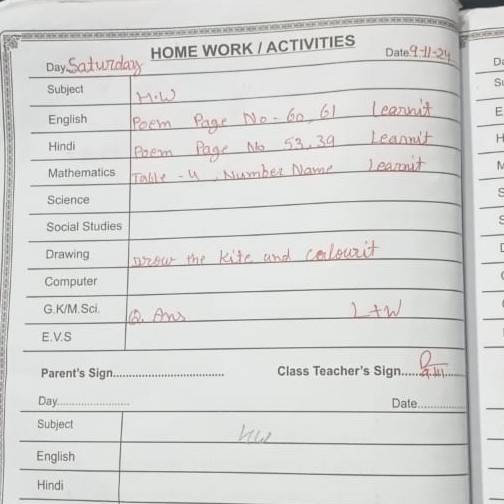 HOME WORK / ACTIVITIES
Day Saturday Date 9-11-24
Subject H.W
English Poem Page No - 60, 61 Learnit
Hindi Poem Page No 53, 39 Learnit
Mathematics Table - 4, Number Name Learnit
Science
Social Studies
Drawing Drow the kite and colourit
Computer
G.K/M.Sci. Q. Ans L+W
E.V.S
Parent's Sign............................ Class Teacher's Sign.....
Day.................... Date............
Subject HW
English
Hindi